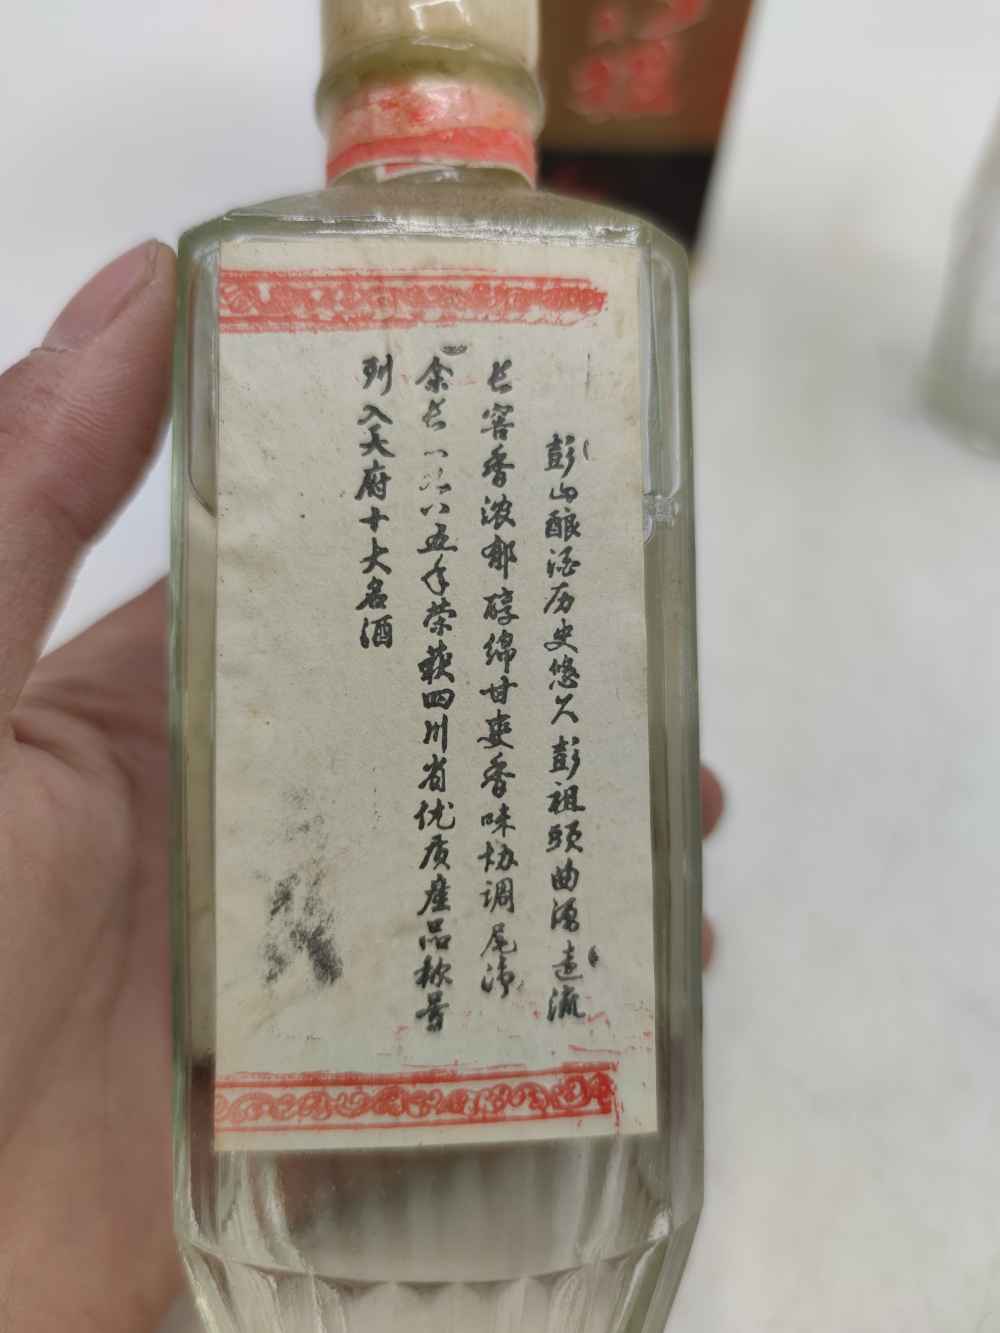 彭山酿酒历史悠久彭祖头曲源远流
长窖香浓郁醇绵甘爽香味协调尾净
余长一九八五年荣获四川省优质产品称号
列入天府十大名酒